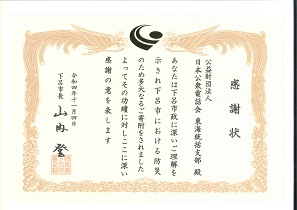 感謝状
公益財団法人
日本公衆電話会 東海統括支部 殿
あなたは下呂市政に深いご理解を
示され下呂市における防災
のため多大なるご寄附をされました
よってその功績に対しここに深い
感謝の意を表します
令和四年十一月四日
下呂市長 山内 登